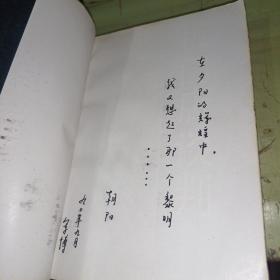 在夕阳的辉煌中。
我又想起了那一个黎明
……
朝阳
年九月